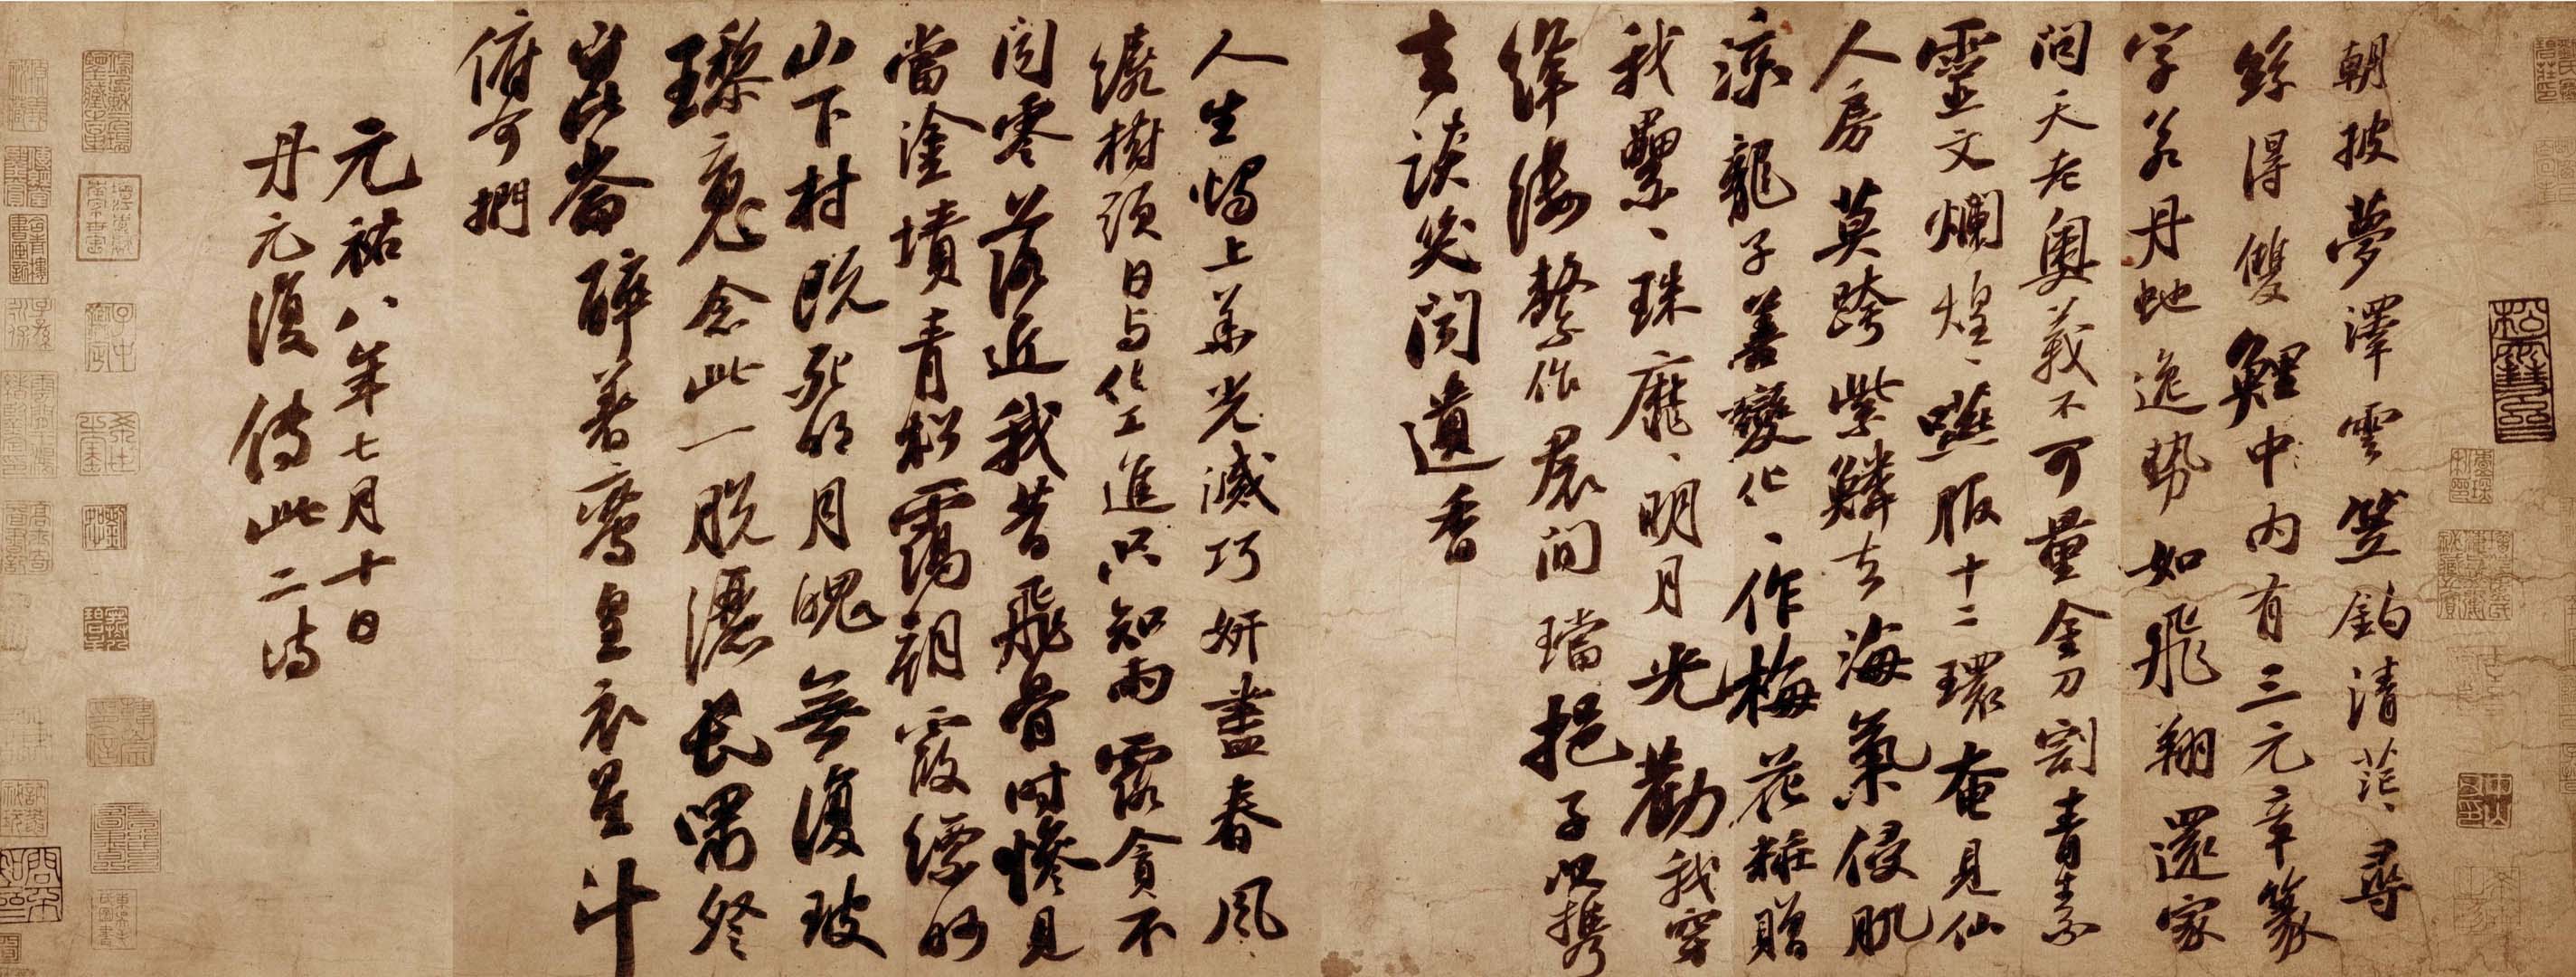 朝披夢澤雲笠釣清茫、尋
絲得雙鯉中内有三元章篆
字若丹虵逸勢如飛翔還家
問天老奧義不可量金刀割青素
靈文爛煌、嚥服十二環奄見仙
人房莫跨紫鱗去海氣侵肌
涼龍子善變化、作梅花粧贈
我纍、珠靡、明月光勸我穿
絳縷繫作裾間璫挹子以攜
去談笑聞遺香
人生燭上華光滅巧妍盡春風
繞樹頭日與化工進只知雨露貪不
聞零落近我昔飛骨時慘見
當塗墳青松靄朝霞縹緲
山下村既死明月魄無復玻
瓈魂念此一脫灑長嘯祭
崑崙醉著鸞皇衣星斗
俯可捫
元祐八年七月十日
丹元復傳此二詩